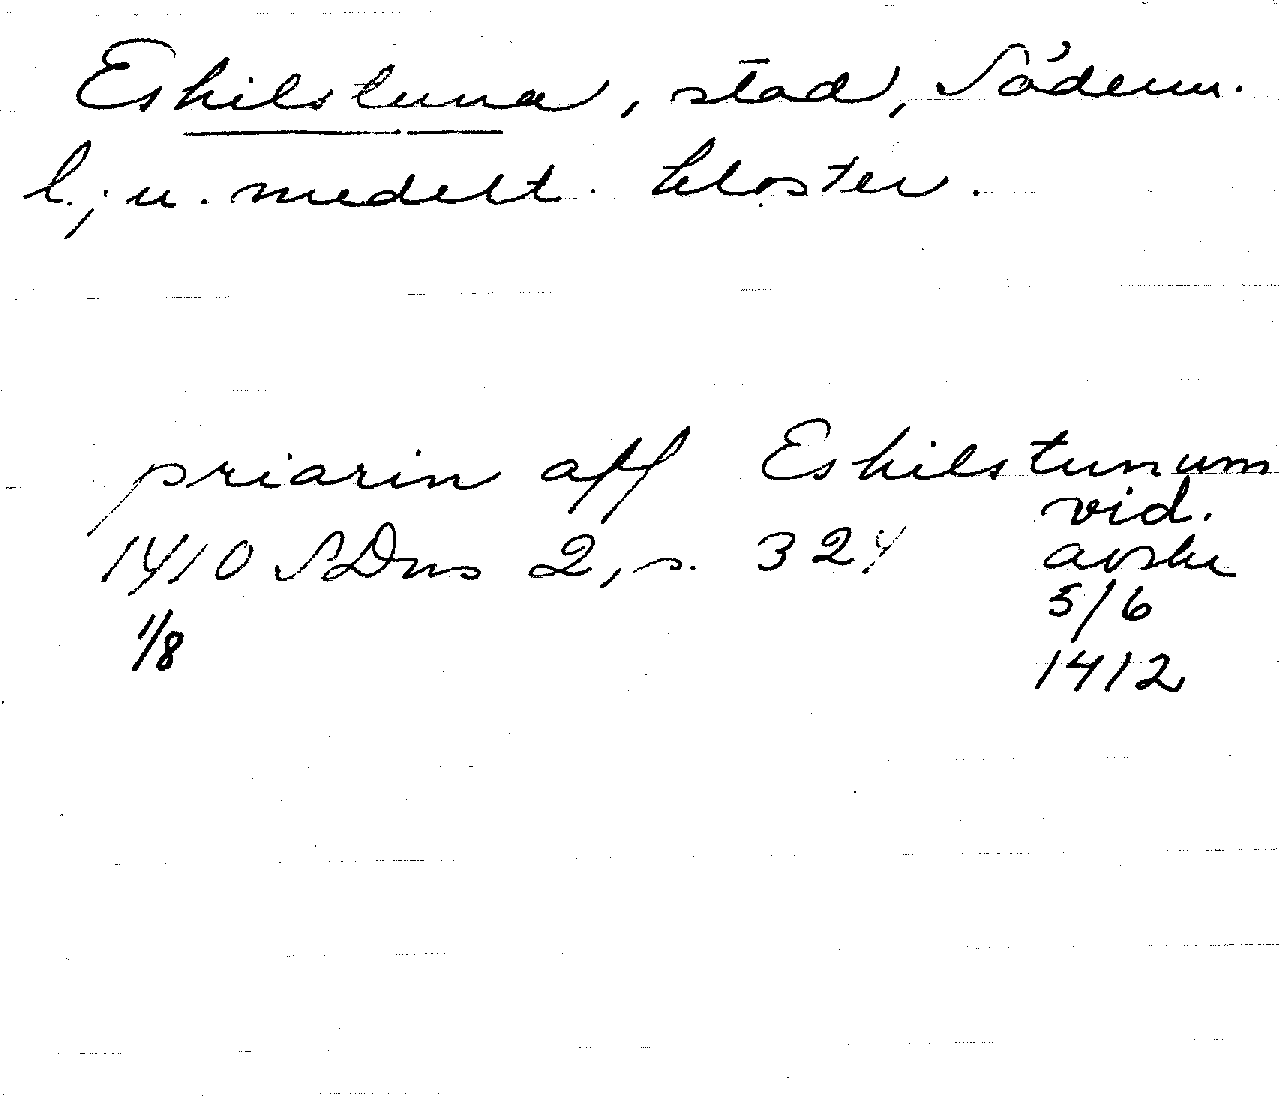 Eskilstuna, stad, Söderm.
l; u. medelt. kloster.
priarin aff Eskilstunum
vid.
1410 SDns 2, s. 324 avskr
1/8 5/6
1412